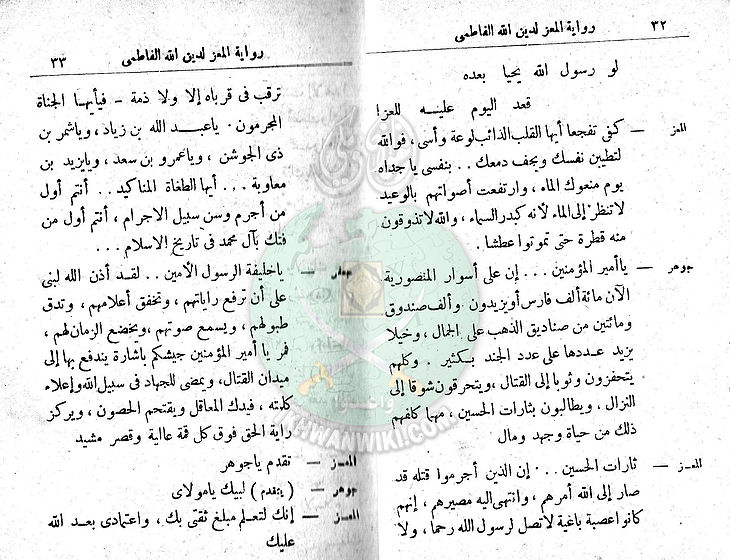 ٣٢ رواية المعز لدين الله الفاطمى
لو رسول الله يحيا بعده
قعد اليوم عليه للعزا
المعز — كفى تفجعا أيها القلب الذائب لوعة وأسى، فوالله
لتطيبن نفسك ويجف دمعك .. بنفسى يا جداه
يوم منعوك الماء، وارتفعت أصواتهم بالوعيد
لا تنظر إلى الماء لأنه كبدر السماء، والله لا تذوقون
منه قطرة حتى تموتوا عطشا.
جوهر — يا أمير المؤمنين ... إن على أسوار المنصورية
الآن مائة ألف فارس أو يزيدون وألف صندوق
ومائتين من صناديق الذهب على الجمال، وخيلا
يزيد عددها على عدد الجند بكثير . وكلهم
يتحفزون وثوبا إلى القتال، ويتحرقون شوقا إلى
النزال، ويطالبون بثارات الحسين، مهما كلفهم
ذلك من حياة وجهد ومال
المعز — ثارات الحسين ... إن الذين أجرموا قتله قد
صار إلى الله أمرهم، وانتهى اليه مصيرهم، إنهم
كانوا عصبة باغية لا تصل لرسول الله رحما، ولا
رواية المعز لدين الله الفاطمى ٣٣
ترقب فى قرباه إلا ولا ذمة - فيأيها الجناة
المجرمون. يا عبد الله بن زياد، ويا شمر بن
ذى الجوشن، ويا عمرو بن سعد، ويا يزيد بن
معاوية ... أيها الطغاة المناكيد .. أنتم أول
من أجرم وسن سبيل الاجرام، أنتم أول من
فتك بآل محمد فى تاريخ الاسلام ...
جوهر — يا خليفة الرسول الأمين .. لقد أذن الله لبنى
على أن ترفع راياتهم، وتخفق أعلامهم، وتدق
طبولهم، ويسمع صوتهم، ويخضع الزمان لهم،
فمر يا أمير المؤمنين جيشكم باشارة يندفع بها إلى
ميدان القتال، ويمضى للجهاد فى سبيل الله وإعلاء
كلمته، فيدك المعاقل ويقتحم الحصون، ويركز
راية الحق فوق كل قمة عالية وقصر مشيد
المعز — تقدم يا جوهر
جوهر — (يتقدم) لبيك يا مولاى
المعز — إنك لتعلم مبلغ ثقتى بك، واعتمادى بعد الله
عليك
IKHWANWIKI.COM